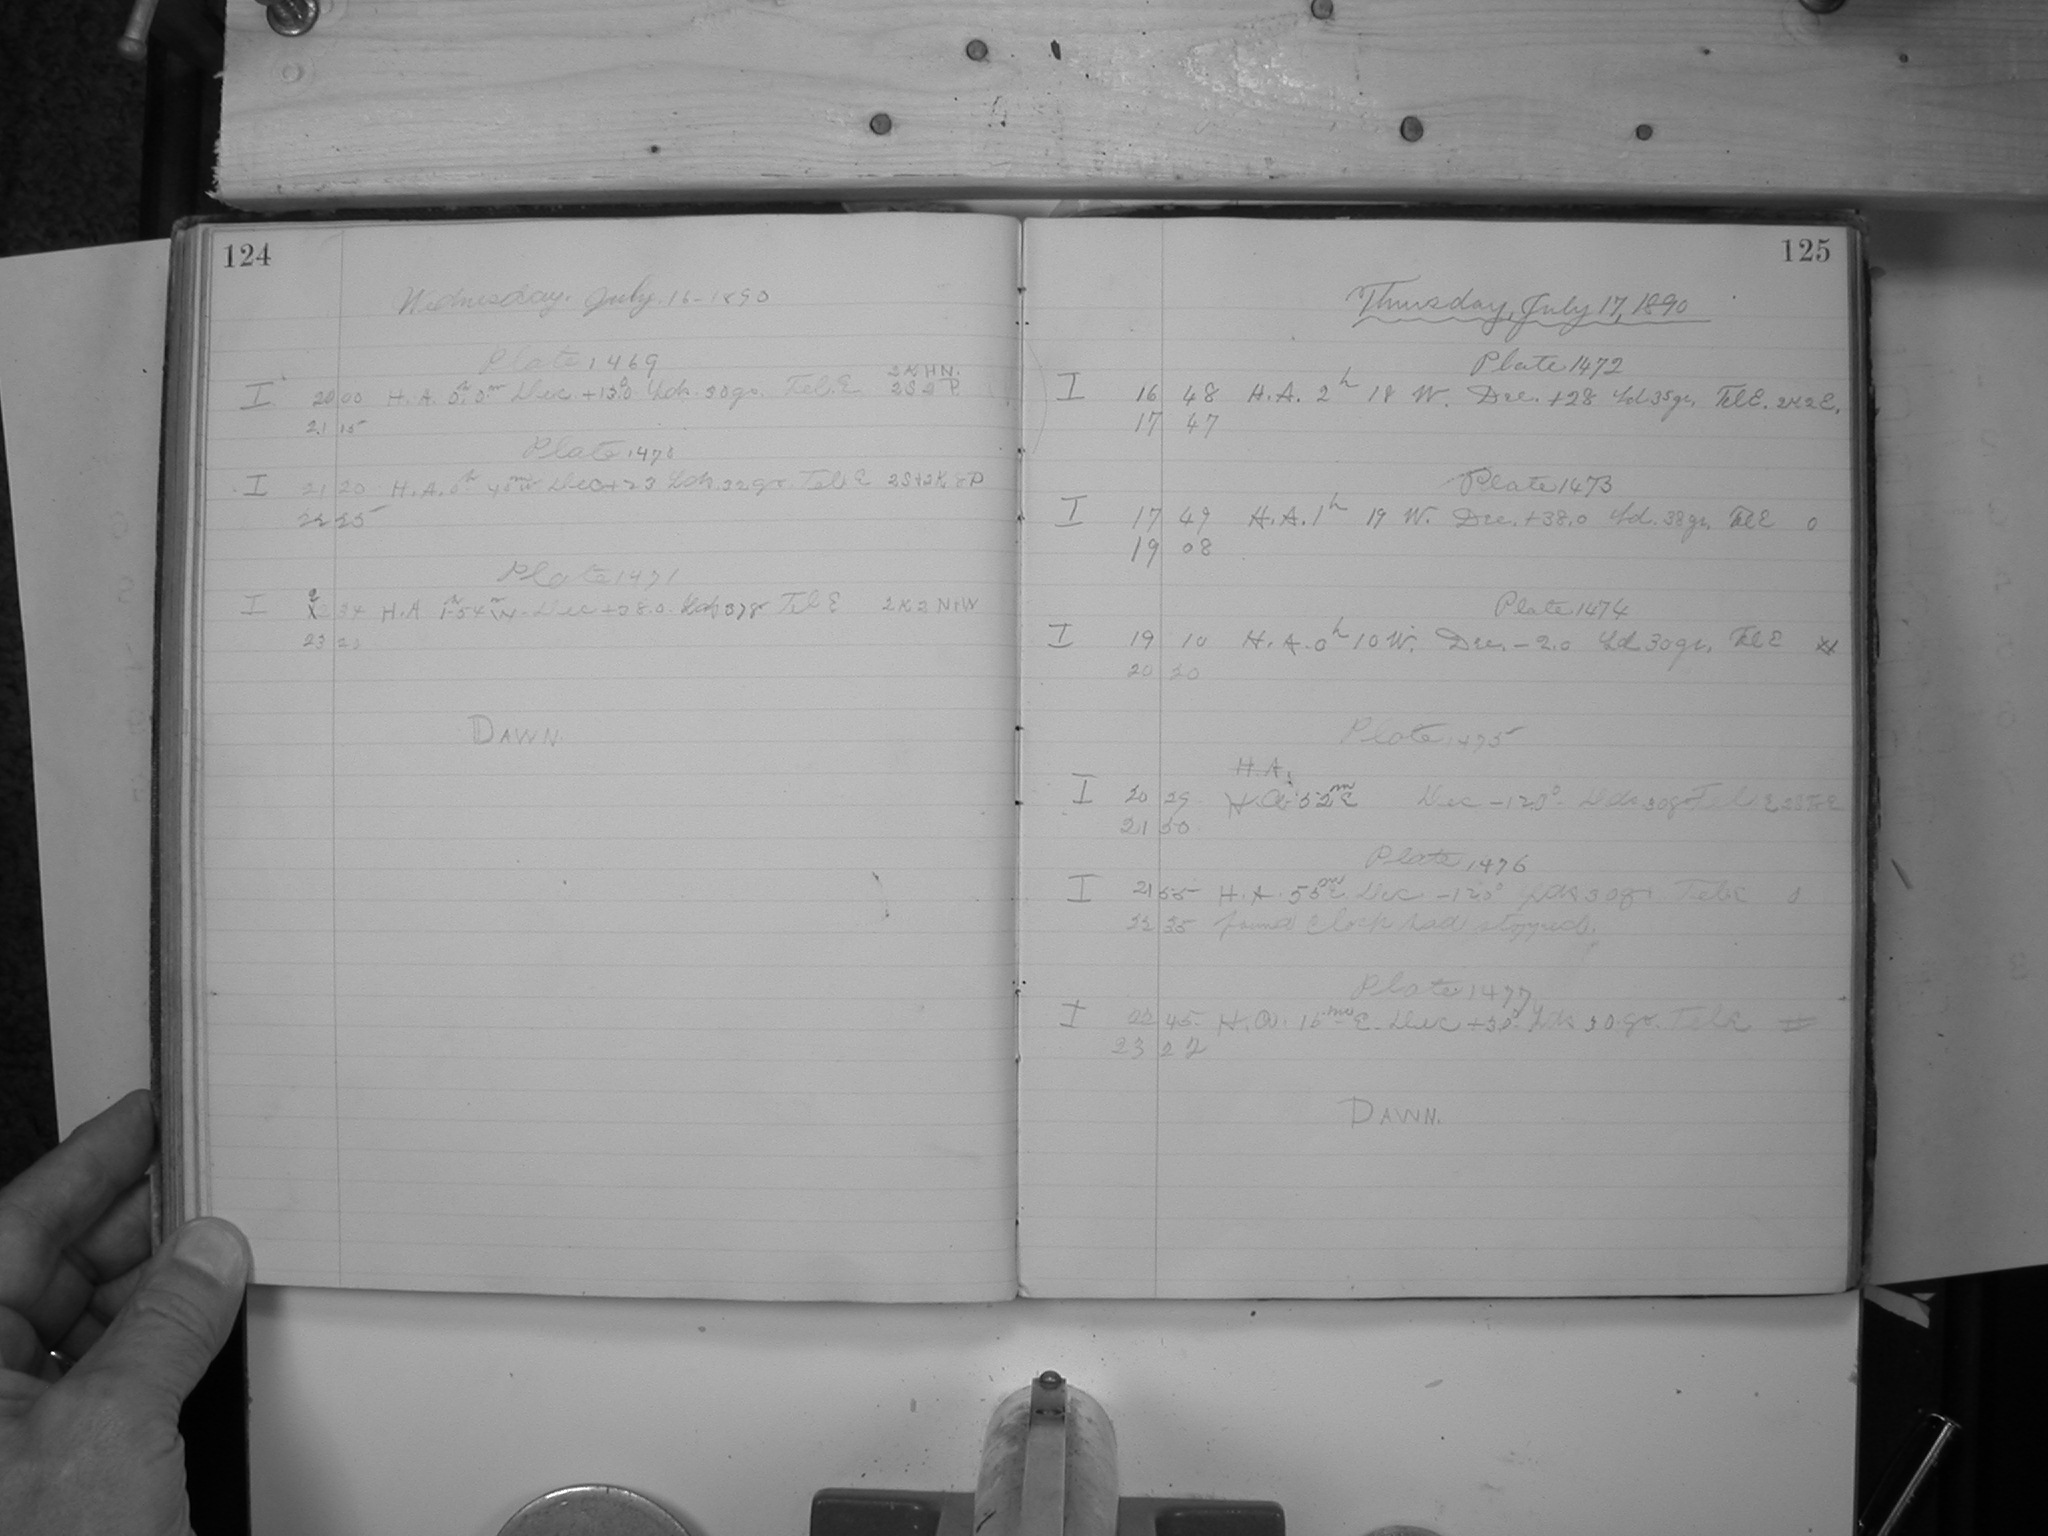 124
Wednesday. July. 16-1890
Plate 1469
2K HN.
I 20 00 H.A. 0h 0m Dec +13°0 Lds. 30gr. Tel. E 2S2P
21 15
Plate 1470
I 21 20 H.A. 0h 40m W Dec +23 Lds. 32gr. Tel. E
22 25
Plate 1471
I 22 34 H.A 1h 54m W. Dec +38.0 Tel E 2K2N+W
23
DAWN.
125
Thursday, July 17, 1890
Plate 1472
I 16 48 H.A. 2h 18 W. Dec. +28 Ld 35gr. Tel E. 2K2E.
17 47
Plate 1473
I 17 49 H.A. 1h 19 W. Dec. +38.0 Ld. 38gr. Tel E 0
19 08
Plate 1474
I 19 10 H.A. 0h 10 W. Dec. -2.0 Ld 30gr. Tel E
20 20
Plate 1475
H.A.
I 20 29 H.A. 52m E Dec -12°0 Lds 30gr Tel E
21 50
Plate 1476
I 21 55 H.A. 55m E Dec -12°0 Lds 30gr Tel E
22 35 found clock had stopped.
Plate 1477
I 22 45 H.A. 15m E. Dec +30° Lds 30.gr. Tel E
23 27
DAWN.